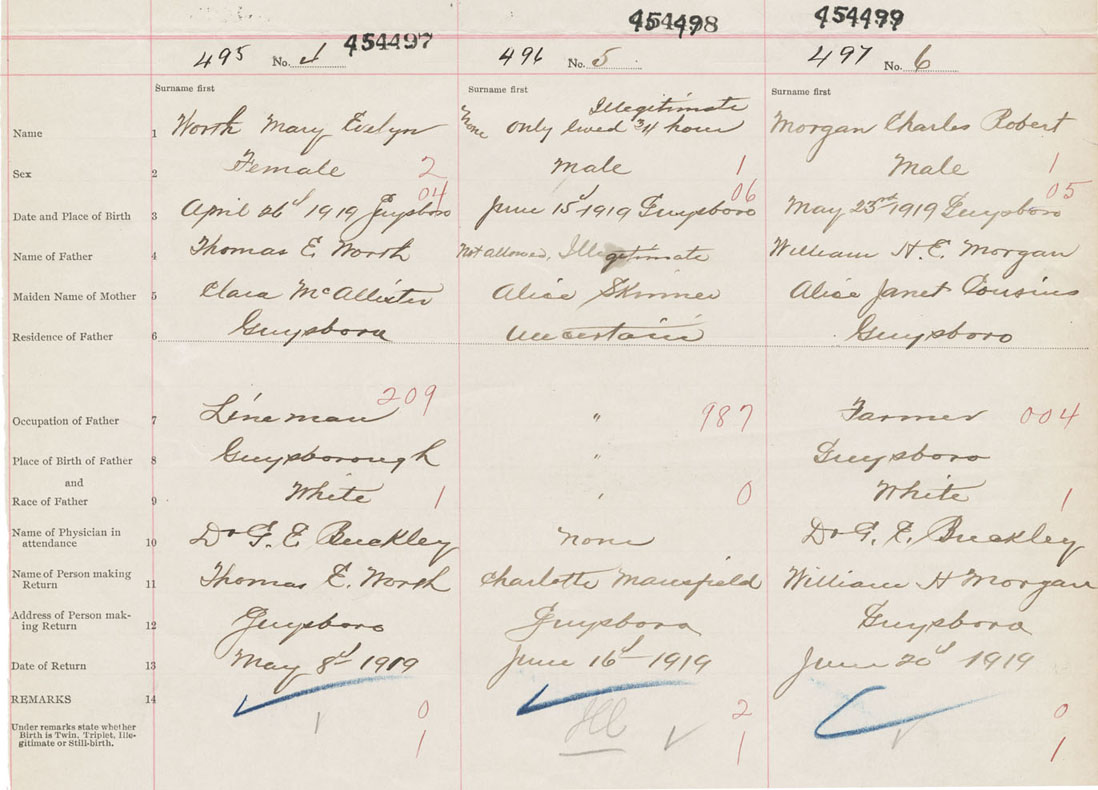 454497 454498 454499
495 No. 4 496 No. 5 497 No. 6
Surname first Surname first Surname first
Illegitimate
Name 1 Worth Mary Evelyn None only lived 3/4 hour Morgan Charles Robert
Sex 2 Female 2 Male 1 Male 1
04 06 05
Date and Place of Birth 3 April 26d 1919 Guysboro June 15d 1919 Guysboro May 23rd 1919 Guysboro
Name of Father 4 Thomas E Worth Not allowed, Illegitimate William H. E. Morgan
Maiden Name of Mother 5 Clara McAllister Alice Skinner Alice Janet Cousins
Residence of Father 6 Guysboro Uncertain Guysboro
209
Occupation of Father 7 Lineman " 987 Farmer 004
Place of Birth of Father 8 Guysborough " Guysboro
and
Race of Father 9 White 1 " 0 White 1
Name of Physician in
attendance 10 Dr G. E Buckley None Dr G. E. Buckley
Name of Person making
Return 11 Thomas E. Worth Charlotte Mansfield William H Morgan
Address of Person mak-
ing Return 12 Guysboro Guysboro Guysboro
Date of Return 13 May 8d 1919 June 16d 1919 June 20d 1919
REMARKS 14
0 2 0
Under remarks state whether
Birth is Twin, Triplet, Ille-
gitimate or Still-birth.
Ill
1 1 1